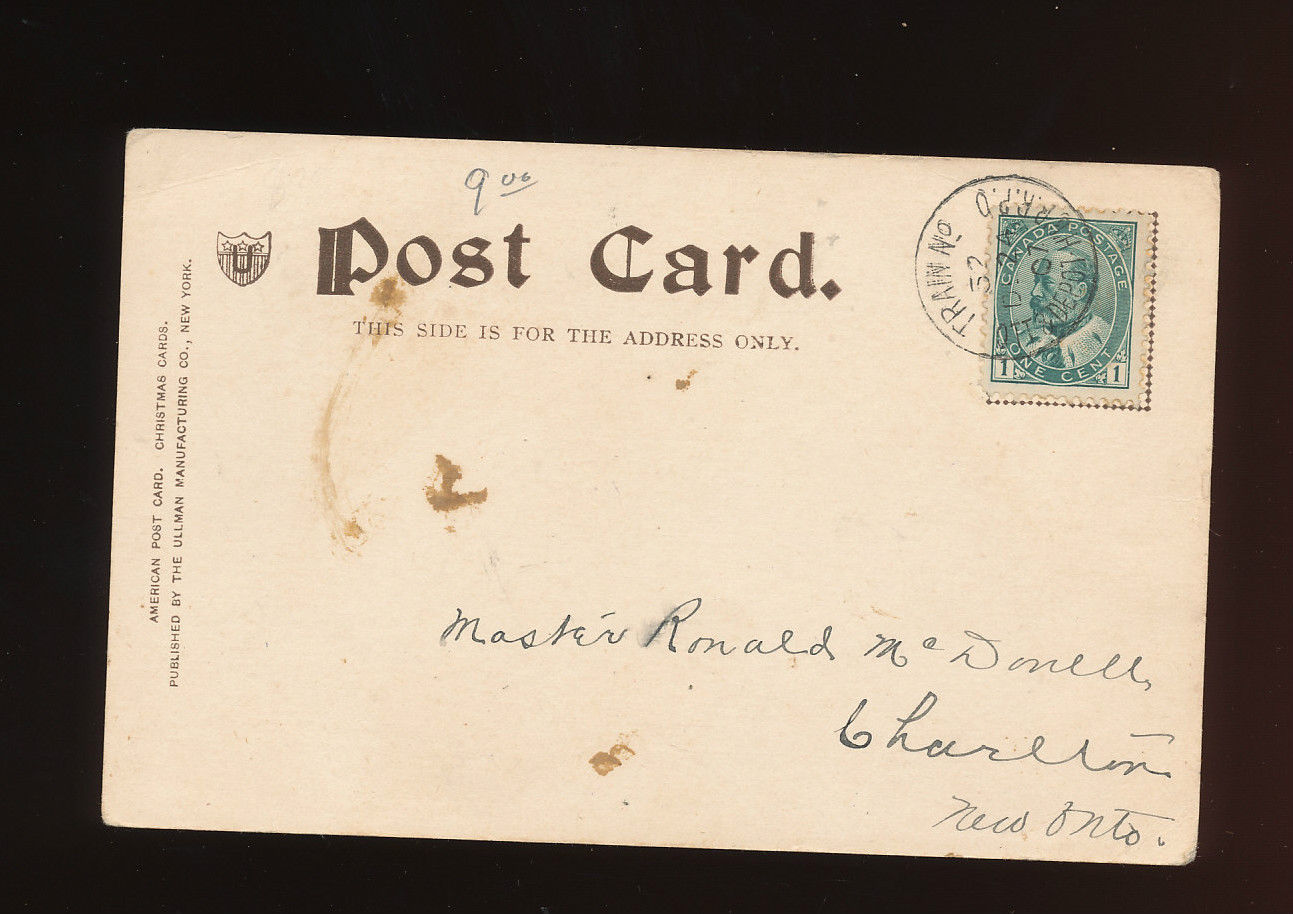 9 00
U
Post Card.
THIS SIDE IS FOR THE ADDRESS ONLY.
AMERICAN POST CARD. CHRISTMAS CARDS.
PUBLISHED BY THE ULLMAN MANUFACTURING CO., NEW YORK.
TRAIN No
52
R.P.O
CANADA POSTAGE
1 ONE CENT 1
Master Ronald McDonell,
Charlton
New Onto.